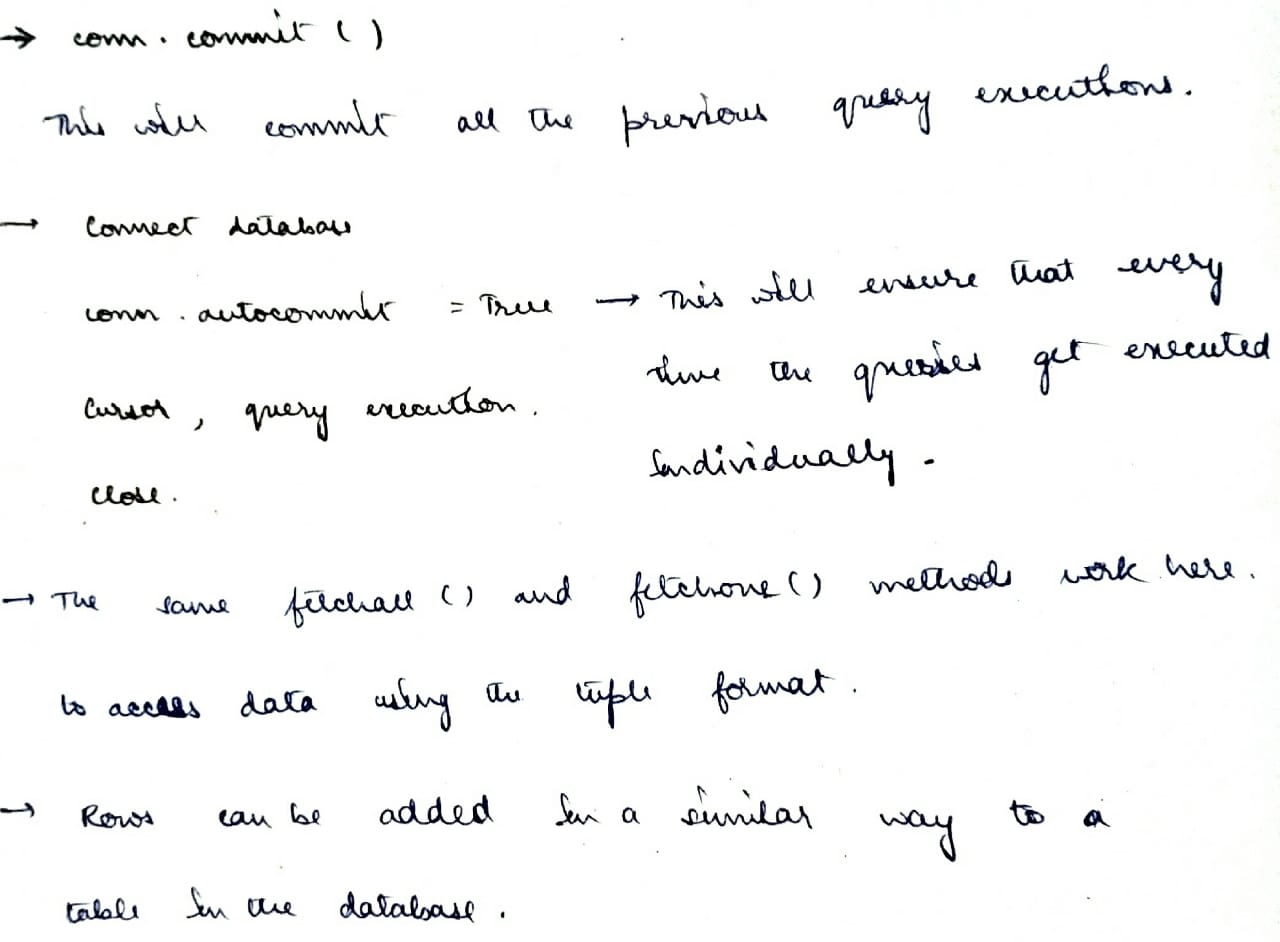 → conn. commit ( )
This will commit all the previous query executions.
→ Connect database
conn. autocommit = True → This will ensure that every
time the queries get executed
Cursor, query execution.
individually.
close.
→ The same fetchall () and fetchone () methods work here.
to access data using the tuple format.
→ Rows can be added in a similar way to a
table in the database.